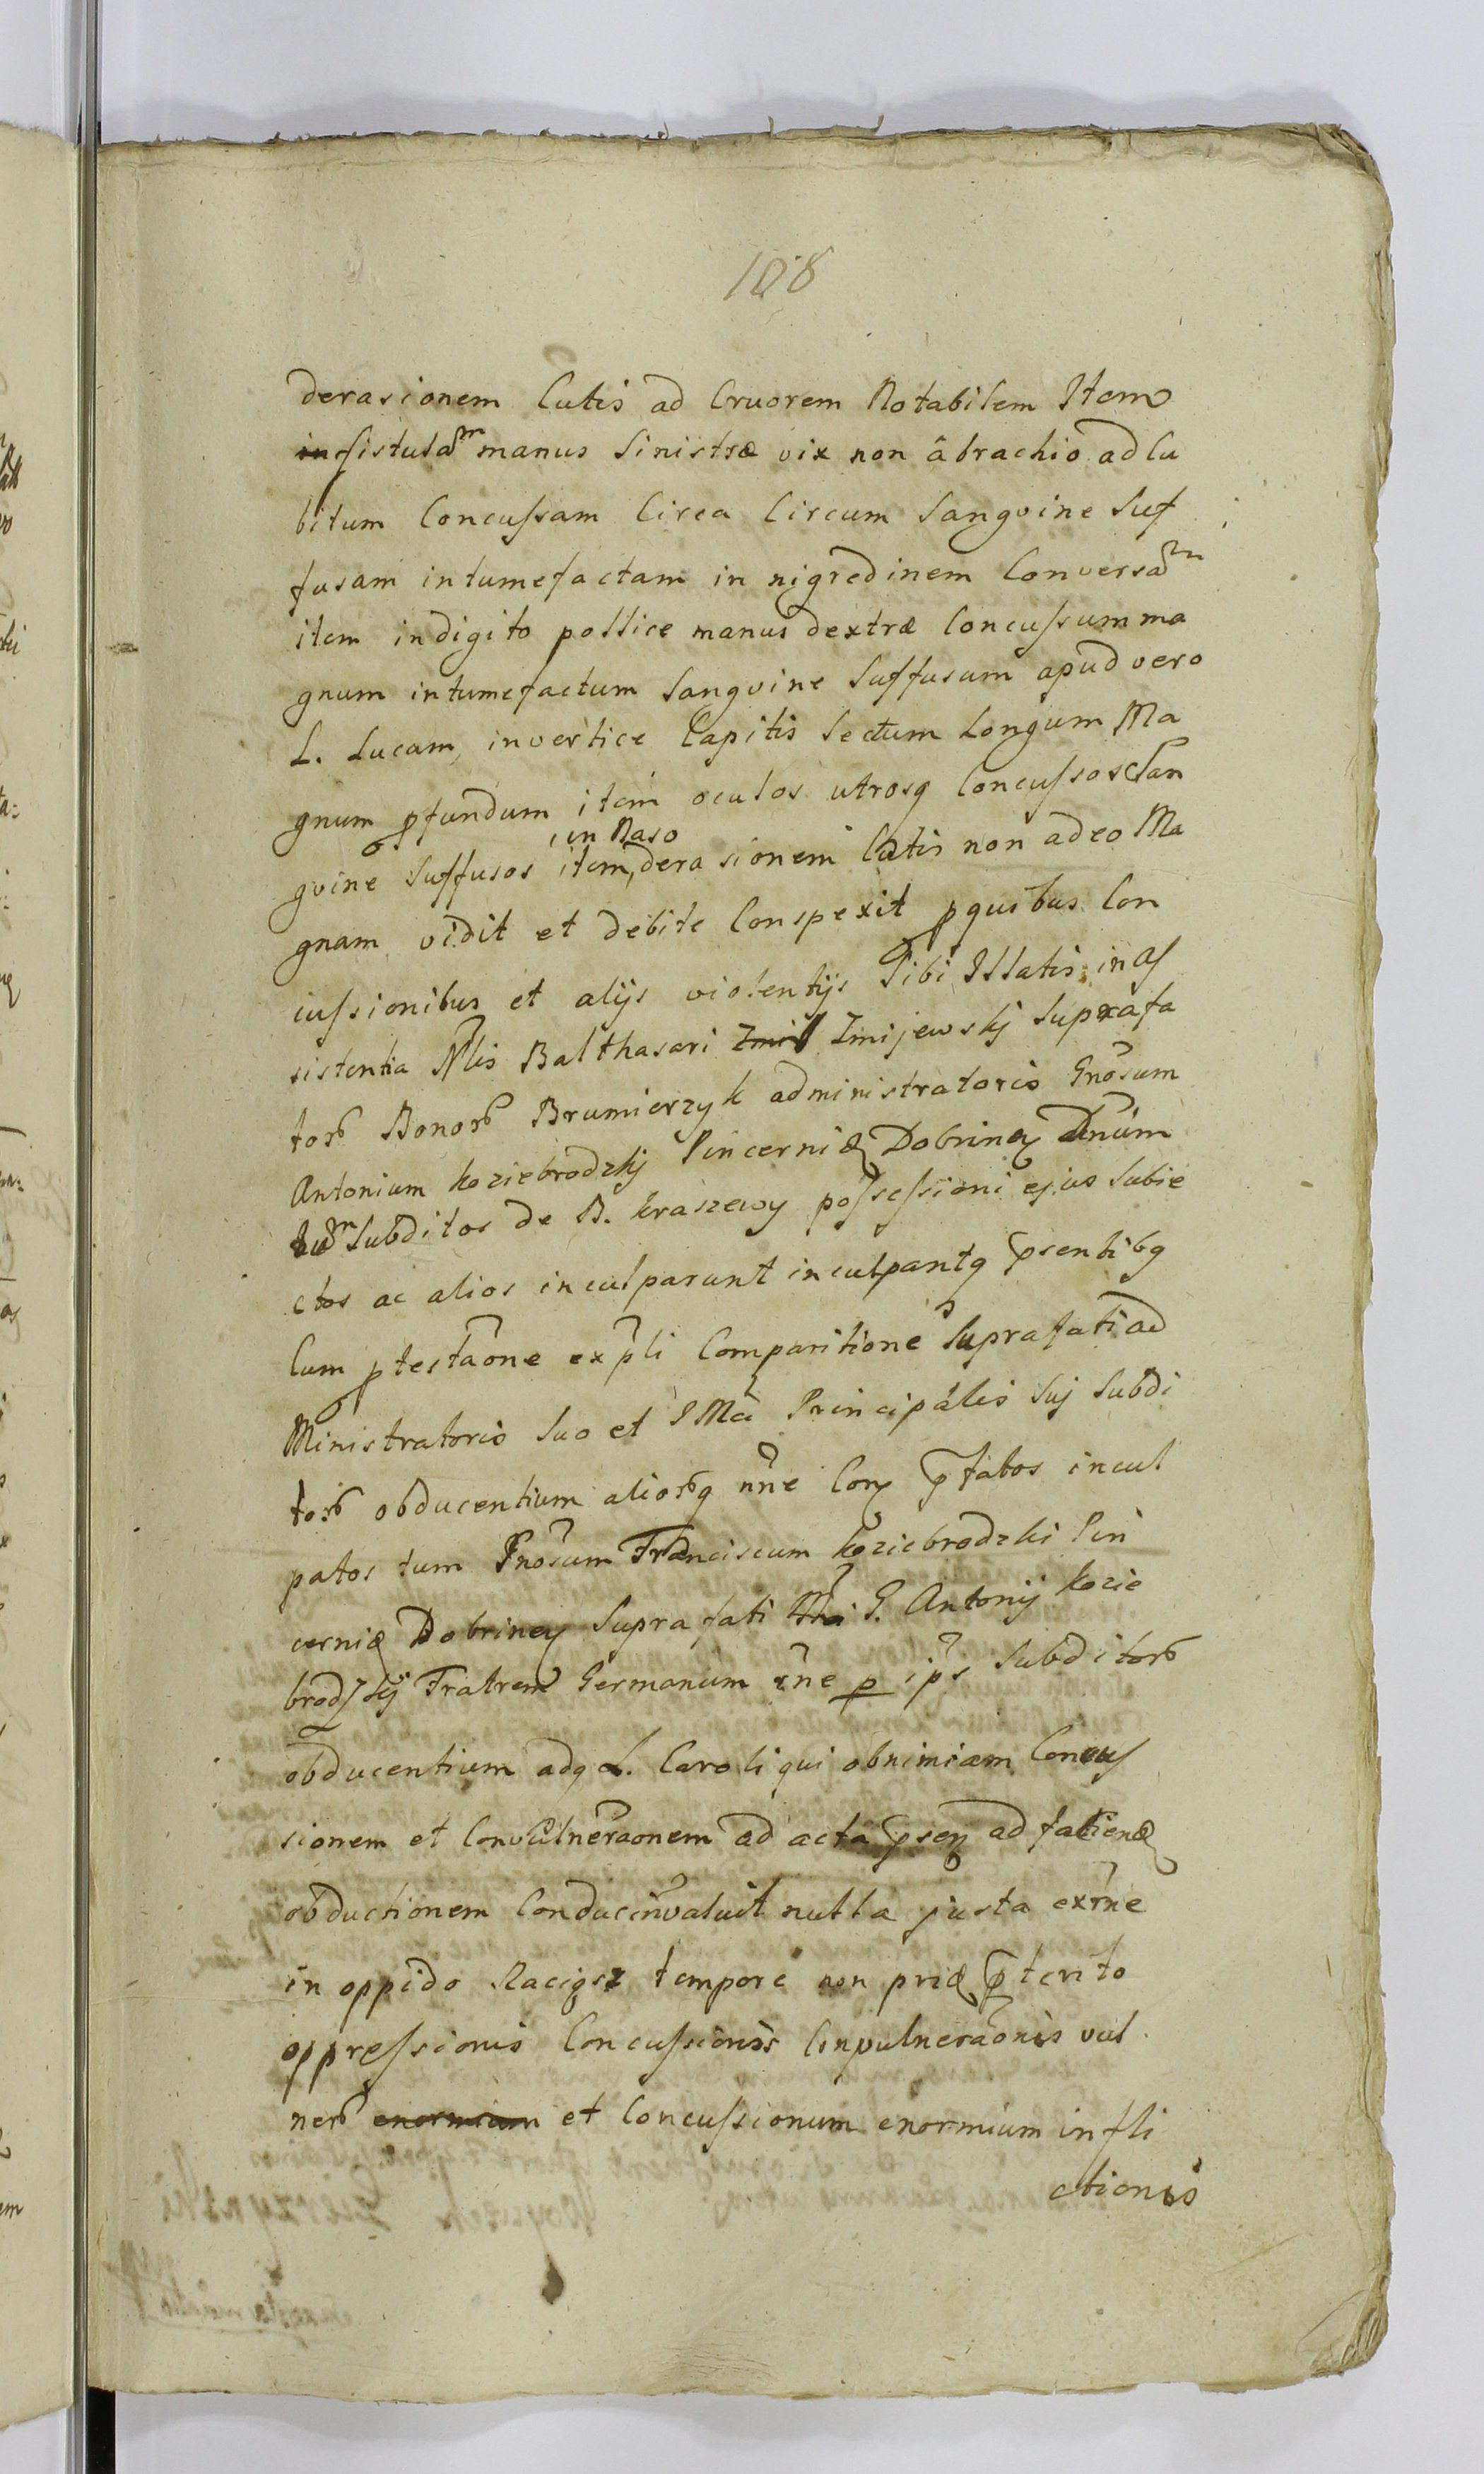 108
derasionem Cutis ad Cruorem Notabilem Item
in fistulam manus sinistræ vix non â brachio ad Cu
bitum Concussam Circa Circum Sangvine Suf
fusam intumefactam in nigredinem Conversam
item in digito pollice manus dextræ Concussum ma
gnum intumefactum Sangvine Suffusum apud vero
L. Lucam, in vertice Capitis Sectum Longum Ma
gnum pfundum item oculos utrosq Concussos San
in Naso
gvine Suffusos item, derasionem Cutis non adeo Ma
gnam vidit et debite Conspexit p quibus Con
cussionibus et alijs violentijs Sibi Illatis in as
sistentia Nlis Balthasari Zmijewskj Suprafa
torƺ Bonorƺ Brumierzyk administratoris Gnosum
Antonium Koziebrodzkj Pincernię Dobrinen Dnum
Subditos de B. Kraszewy possessioni ejus Subie
ctos ac alios inculparunt inculpantq psentibq
Cum ptestaone expli Comparitione Suprafati ad
Ministratoris Suo et Principalis Suj Subdi
torƺ obducentium aliorƺq nne Cor ptatos incul
patos tum Gnosum Franciscum Koziebrodzki Pin
cernię Dobrinen Suprafati G. Antonij Kozie
brodzkij Fratrem Germanum rne p ips Subditorƺ
obducentium adq L. Caroli qui ob nimiam Concus
sionem et Convulneraonem ad acta psen ad faciend
obductionem Conduci nvaluit nulla justa exrne
in oppido Raciąsz tempore non prid pterito
oppressionis Concussionis Convulneraonis vul
nerƺ enormium et Concussionum enormium infli
ctionis